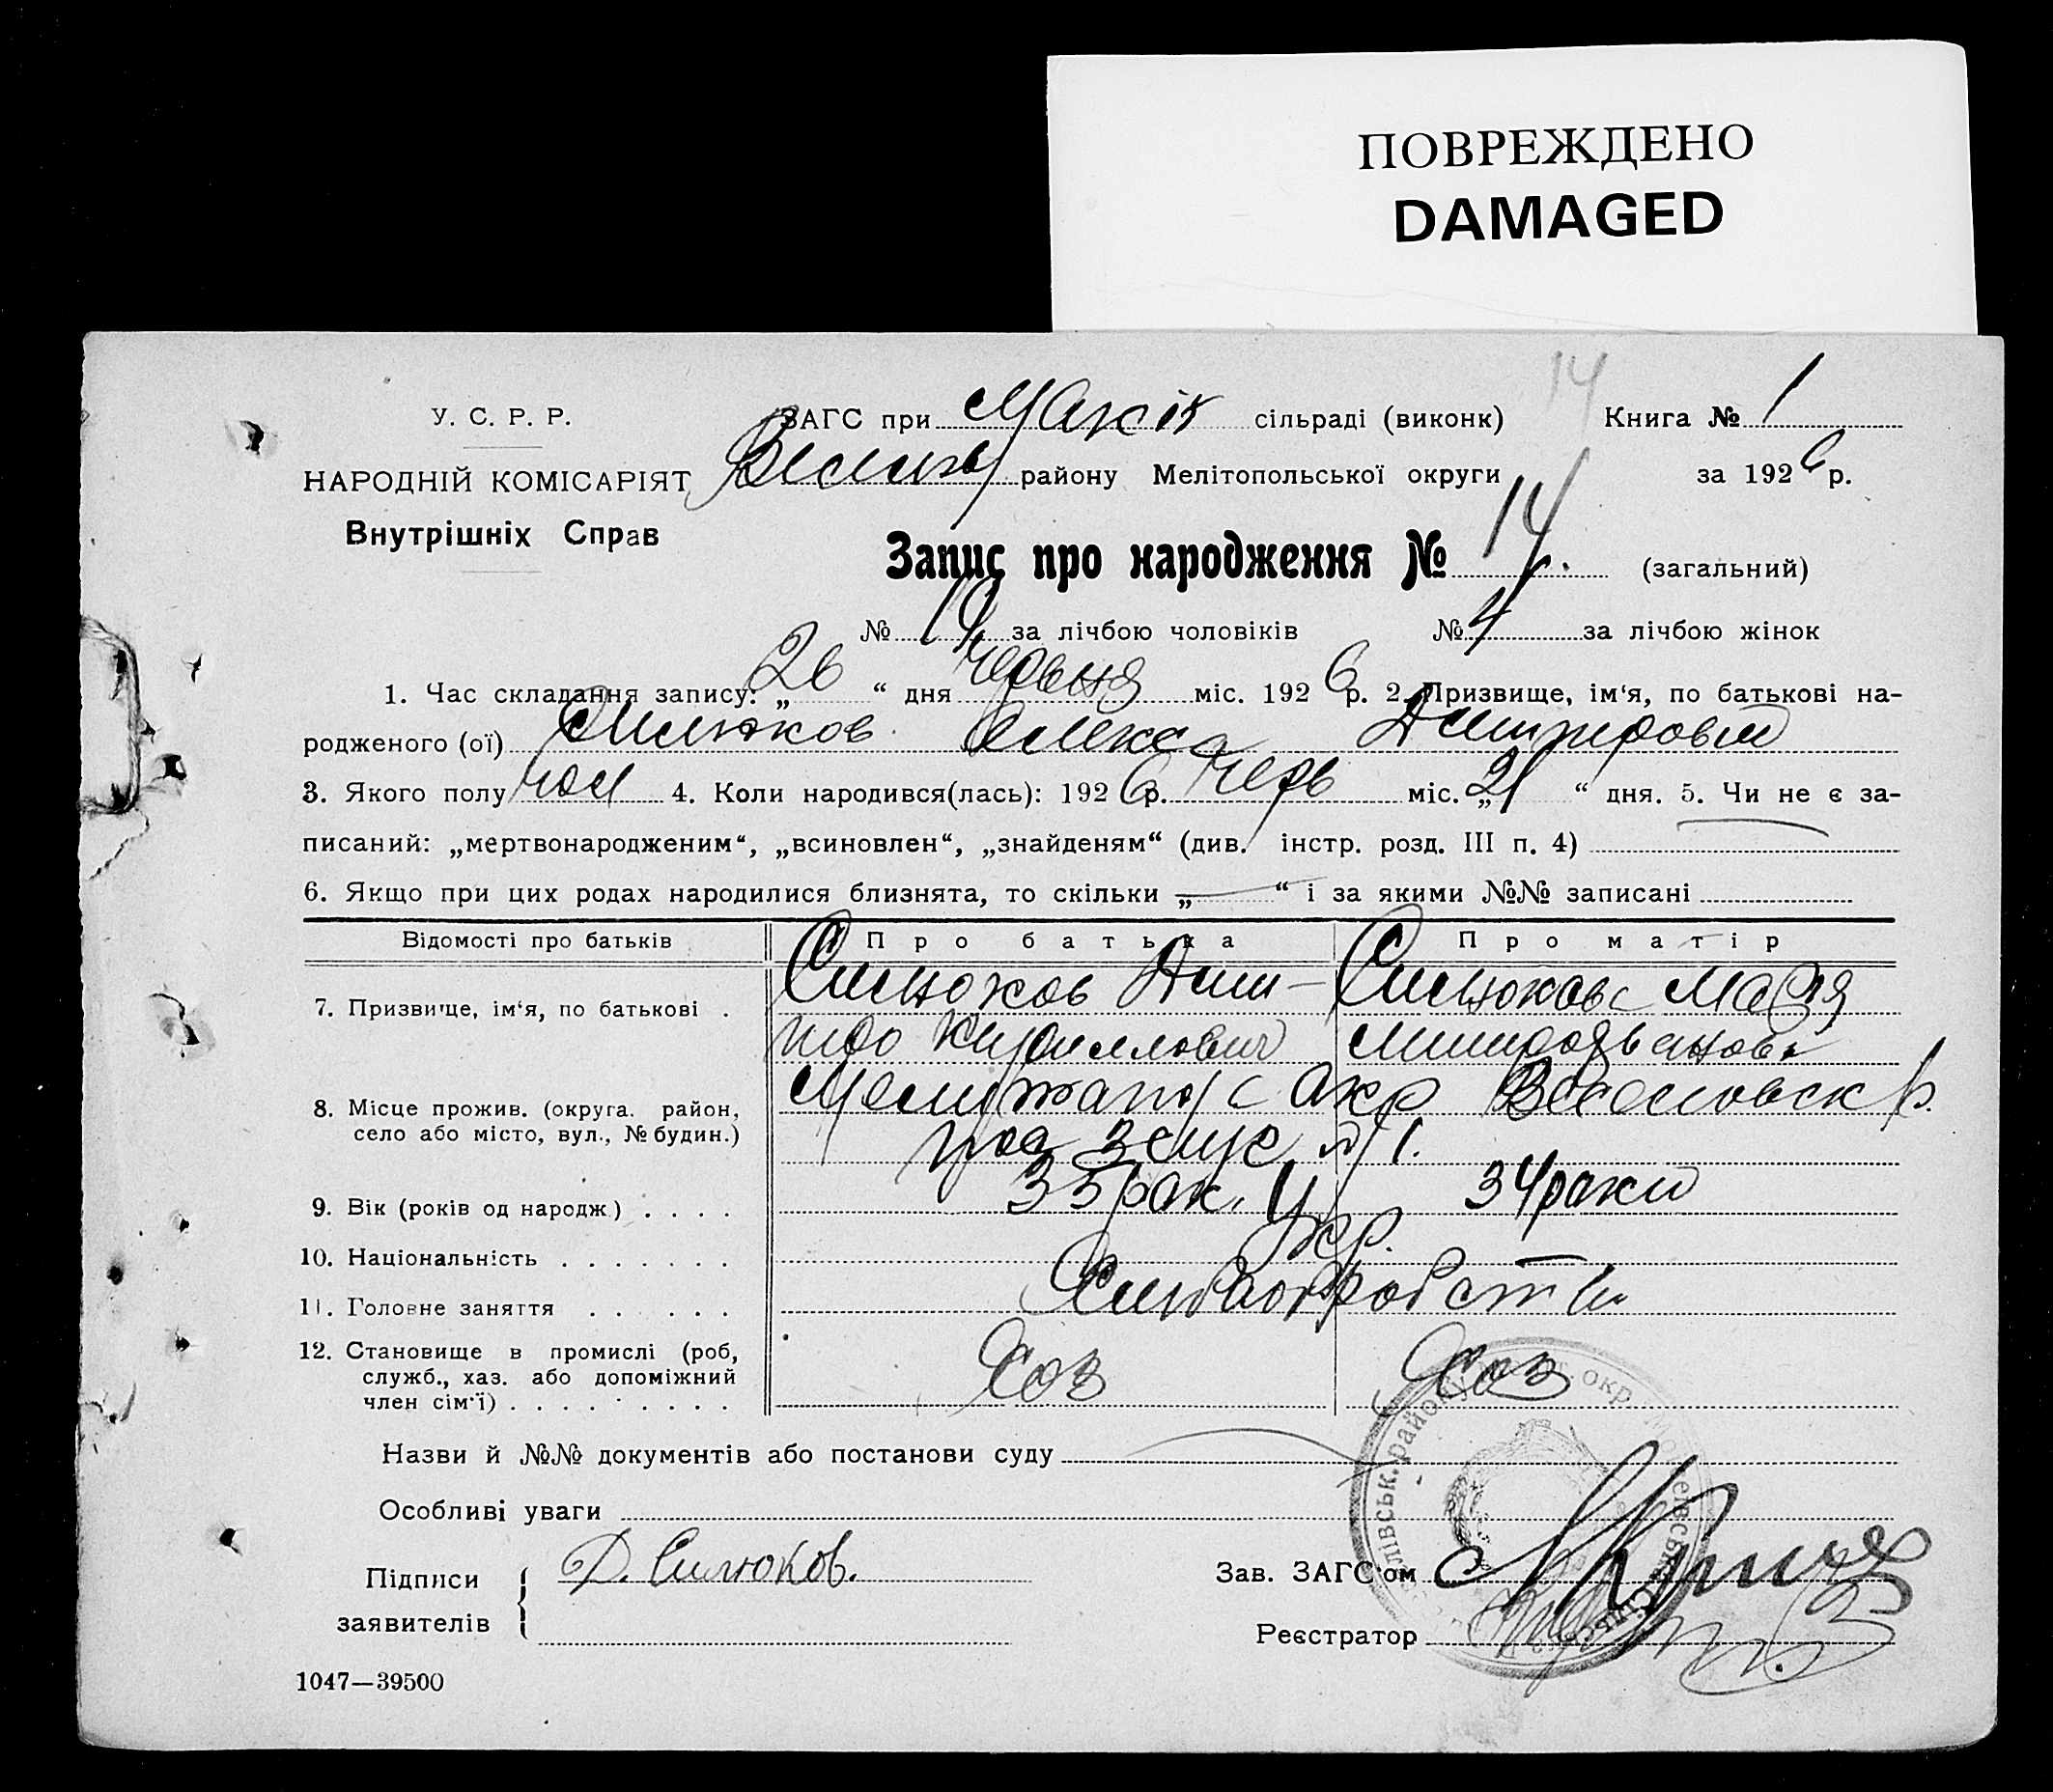 ПОВРЕЖДЕНО
DAMAGED
14
У. С. Р. Р. ЗАГС при сільраді (виконк) Книга № 1
НАРОДНІЙ КОМІСАРІЯТ району Мелітопольської округи за 1926 р.
Внутрішніх Справ
Запис про народження № 14. (загальний)
№ 10 за лічбою чоловіків № 4 за лічбою жінок
1. Час складання запису: „26“ дня червня міс. 1926 р. 2. Призвище, ім‘я, по батькові на-
родженого (ої) Силюков Олекса Дмитрович
3. Якого полу чол 4. Коли народився(лась): 1926 р. черв міс. „21“ дня. 5. Чи не є за-
писаний: „мертвонародженим“, „всиновлен“, „знайденям“ (див. інстр. розд. III п. 4)
6. Якщо при цих родах народилися близнята, то скільки „—“ і за якими №№ записані
Відомості про батьків Про батька Про матір
7. Призвище, ім‘я, по батькові . Силюков Дми- Силюкова Марія
тро Кириллович
8. Місце прожив. (округа. район, окр
село або місто, вул., № будин.) № 1.
9. Вік (років од народж.) . . . . 35 рок. 34 роки
10. Національність . . . . . . . Укр.
11. Головне заняття . . . . . . Хлиборобство
12. Становище в промислі (роб, Хоз Хоз
служб., хаз. або допоміжний
член сім‘ї) . . . . . . . . .
Назви й №№ документів або постанови суду
Особливі уваги
Підписи Д. Силюков. Зав. ЗАГС‘ом
заявителів Реєстратор
1047—39500